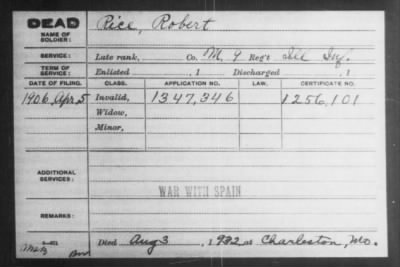 DEAD
NAME OF SOLDIER: Rice, Robert
SERVICE: Late rank, Co. M, 9 Reg't Ill Inf.
TERM OF SERVICE: Enlisted , 1 Discharged , 1
DATE OF FILING. CLASS. APPLICATION NO. LAW. CERTIFICATE NO.
1906, Apr. 5 Invalid, 1347,346 1256,101
Widow,
Minor,
ADDITIONAL SERVICES:
WAR WITH SPAIN
REMARKS:
Died Aug 3, 1932 at Charleston, Mo.